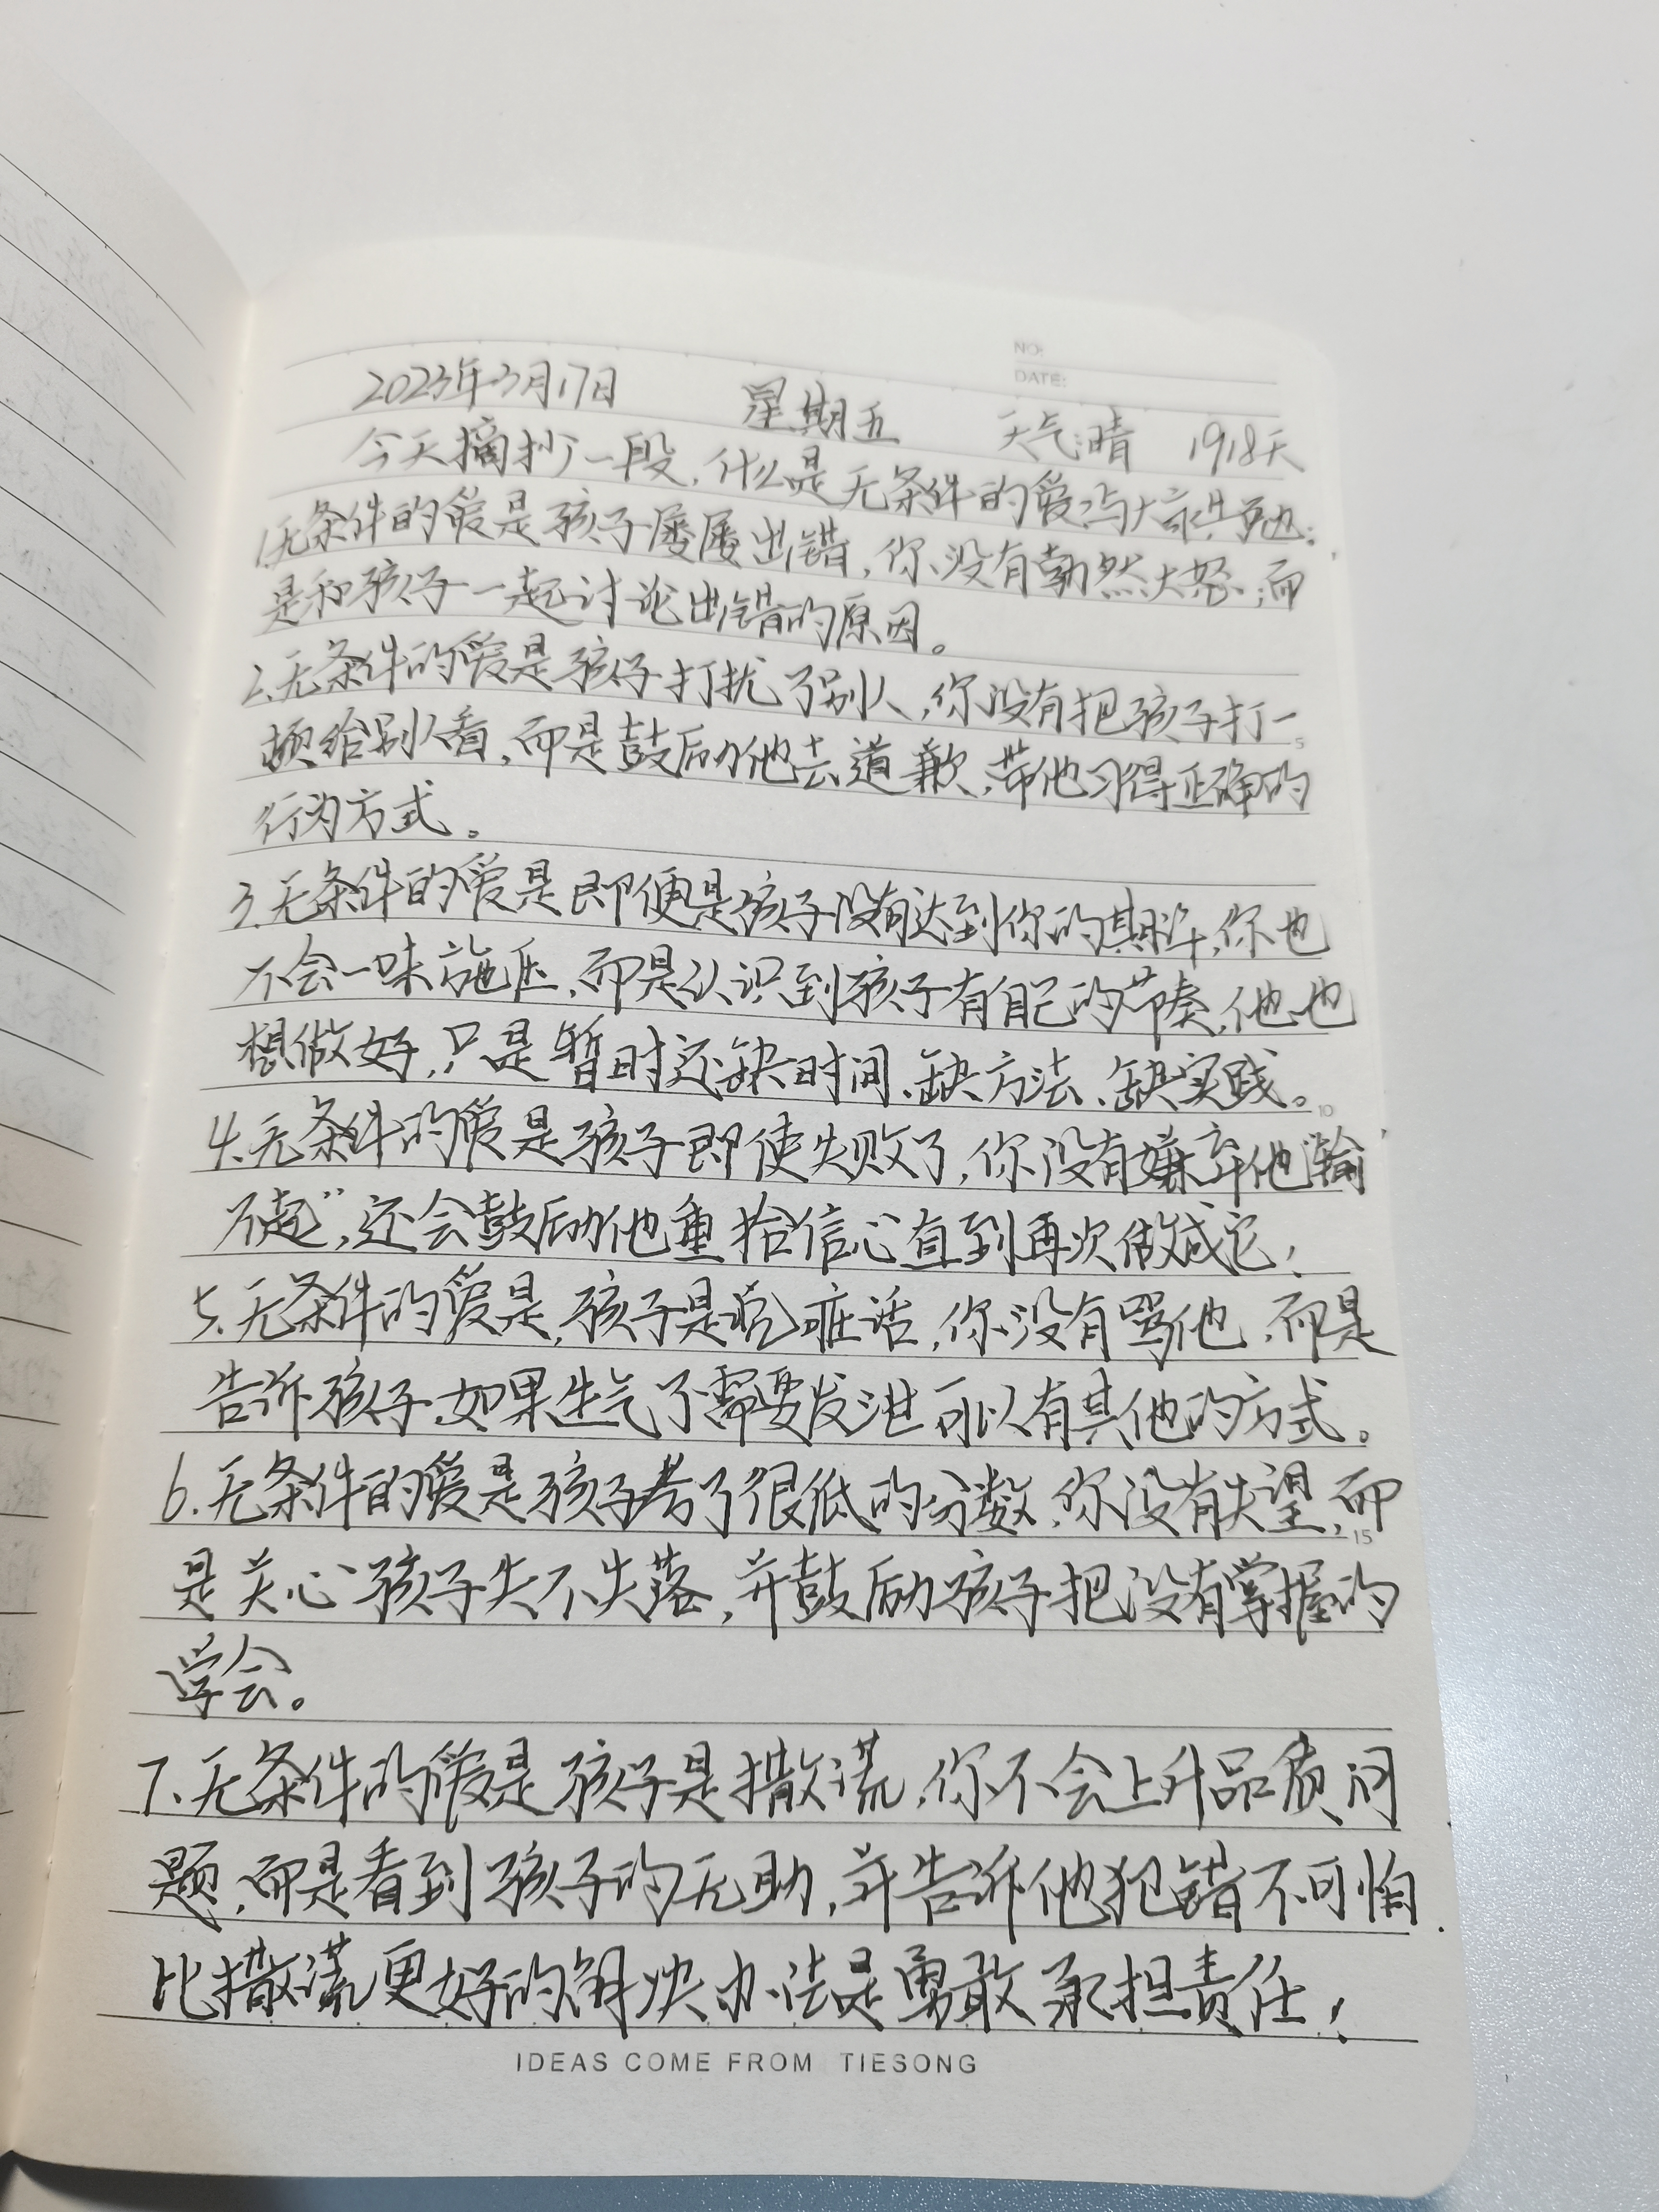 NO:
DATE:
2023年3月17日 星期五 天气:晴 1918天
今天摘抄一段,什么是无条件的爱,与大家共勉:
1.无条件的爱是孩子屡屡出错,你没有勃然大怒,而
是和孩子一起讨论出错的原因。
2.无条件的爱是孩子打扰了别人,你没有把孩子打一
顿给别人看,而是鼓励他去道歉,带他习得正确的
行为方式。
3.无条件的爱是即便是孩子没有达到你的期盼,你也
不会一味施压,而是认识到孩子有自己的节奏,他也
想做好,只是暂时还缺时间、缺方法、缺实践。
4.无条件的爱是孩子即使失败了,你没有嫌弃他“输
不起”,还会鼓励他重拾信心直到再次做成它!
5.无条件的爱是,孩子是说脏话,你没有骂他,而是
告诉孩子,如果生气了需要发泄可以有其他的方式。
6.无条件的爱是孩子考了很低的分数,你没有失望,而
是关心孩子失不失落,并鼓励孩子把没有掌握的
学会。
7.无条件的爱是孩子是撒谎,你不会上升品质问
题,而是看到孩子的无助,并告诉他犯错不可怕,
比撒谎更好的解决办法是勇敢承担责任!
5
10
15
IDEAS COME FROM TIESONG